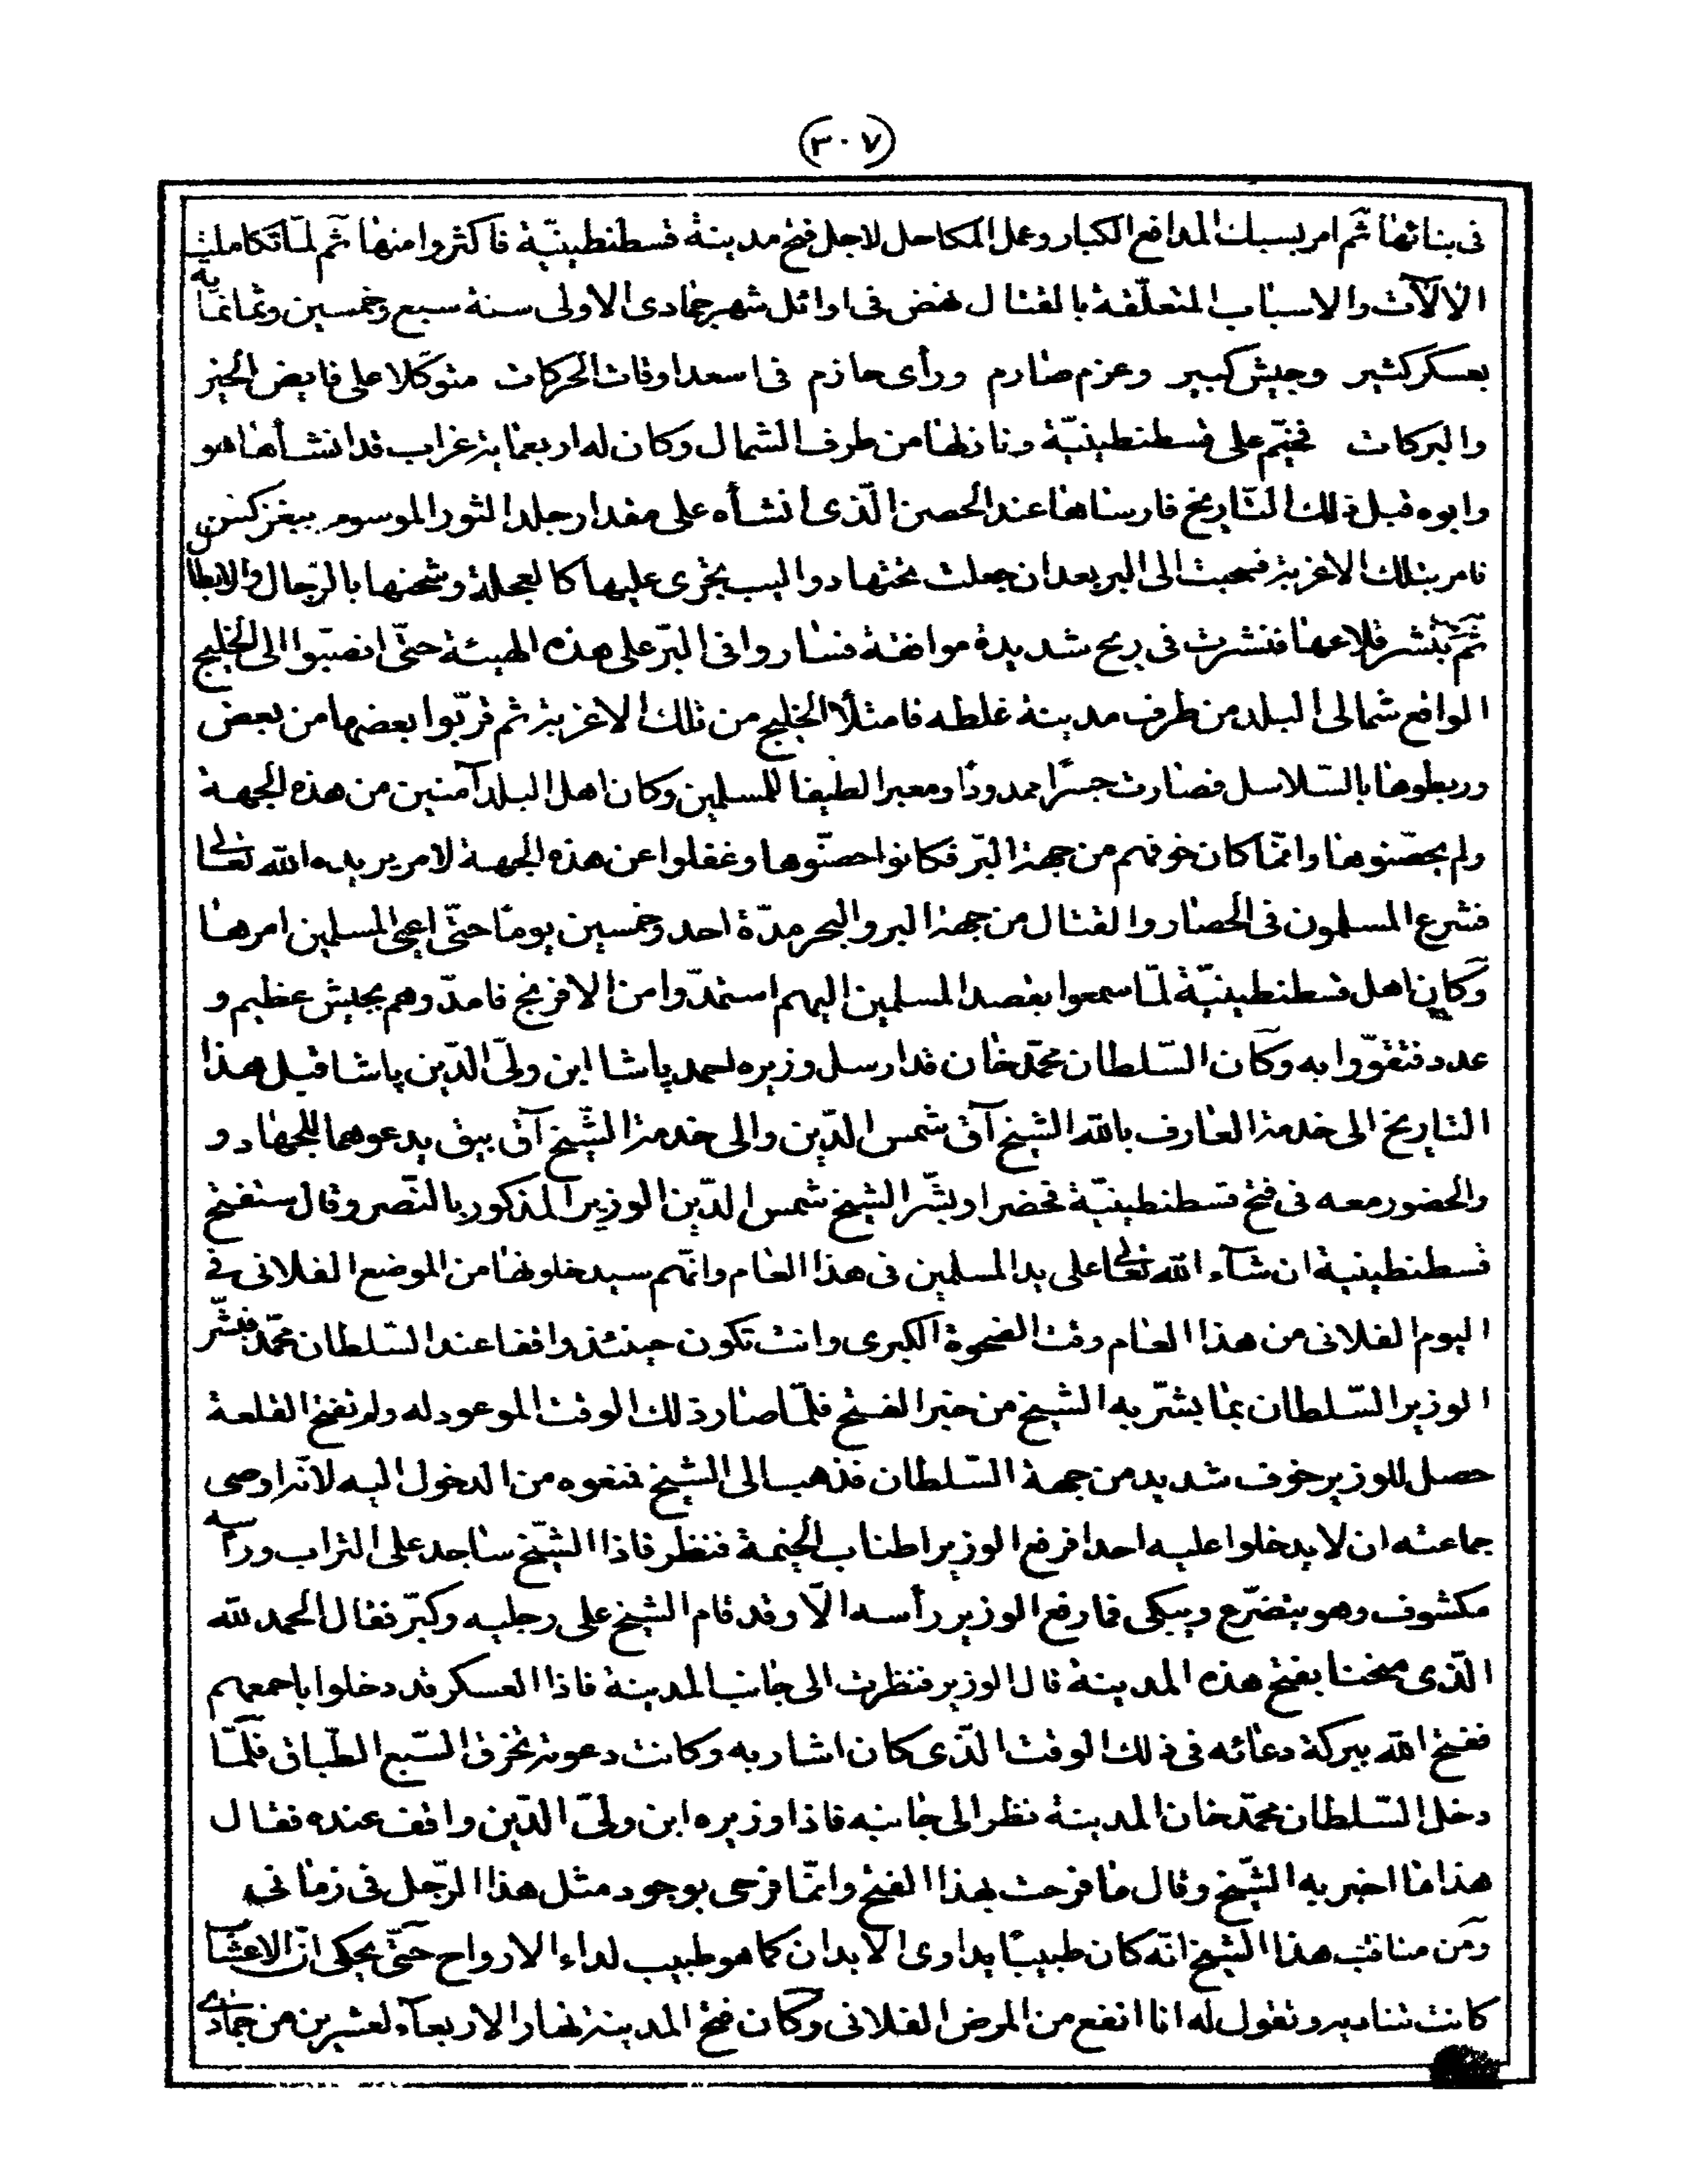 (٣٠٧)
فى بنائها ثم امر بسبك المدافع الكبار وعمل المكاحل لاجل فتح مدينة قسطنطينيّة فاكثروا منها ثم لمّا تكاملت
الالآت والاسباب المتعلّقة بالقتال نهض فى اوائل شهر جمادى الاولى سنة سبع وخمسين وثمانمايه
بعسكر كثير وجيش كبير وعزم صارم ورأى حازم فى اسعد اوقات الحركات متوكّلا على فايض الخير
والبركات فخيّم على قسطنطينيّة ونازلها من طرف الشمال وكان له اربعماية غراب قد انشأها هو
وابوه قبل ذلك التّاريخ فارساها عند الحصن الّذى انشأه على مقدار جلد الثور الموسوم ببغز كسن
فامر بتلك الاغربة فسحبت الى البر بعد ان جعلت تحتها دواليب تجرى عليها كالعجلة وشحنها بالرّجال والابطال
ثم بنشر قلاعها فنشرت فى ريح شديدة موافقة فساروا فى البرّ على هذه الهيئة حتّى انصبّوا الى الخليج
الواقع شمالى البلد من طرف مدينة غلطه فامتلأ الخليج من تلك الاغربة ثم قرّبوا بعضها من بعض
وربطوها بالسّلاسل فصارت جسرًا ممدودًا ومعبرا لطيفا للمسلمين وكان اهل البلد آمنين من هذه الجهة
ولم يحصّنوها وانّما كان خوفهم من جهة البرّ فكانوا حصّنوها وغفلوا عن هذه الجهة لامر يريده الله تعالى
فشرع المسلمون فى الحصار والقتال من جهة البر والبحر مدّة احد وخمسين يومًا حتّى اعيى المسلمين امرها
وكان اهل قسطنطينيّة لمّا سمعوا بقصد المسلمين اليهم استمدّوا من الافرنج فامدّوهم بجيش عظيم و
عدد فتقوّوا به وكان السّلطان محمّد خان قد ارسل وزيره احمد پاشا ابن ولىّ الدّين پاشا قبل هذا
التاريخ الى خدمة العارف بالله الشيخ آق شمس الدّين والى خدمة الشّيخ آق بيق يدعوهما للجهاد و
والحضور معه فى فتح قسطنطينيّة فحضرا وبشّر الشيخ شمس الدّين الوزير المذكور بالنّصر وقال ستفتح
قسطنطينية ان شآء الله تعالى على يد المسلمين فى هذا العام وانّهم سيدخلونها من الموضع الفلانى فى
اليوم الفلانى من هذا العام وقت الضحوة الكبرى وانت تكون حينئذ واقفا عند السّلطان محمّد فبشّر
الوزير السّلطان بما بشّر به الشيخ من خبر الفتح فلمّا صار ذلك الوقت الموعود له ولم تفتح القلعة
حصل للوزير خوف شديد من جهة السّلطان فذهب الى الشيخ فمنعوه من الدخول اليه لانّه اوصى
جماعته ان لا يدخلوا عليه احدا فرفع الوزير اطناب الخيمة فنظر فاذا الشّيخ ساجد على التراب ورأسه
مكشوف وهو يتضرّع ويبكى فما رفع الوزير رأسه الّا وقد قام الشيخ على رجليه وكبّر فقال الحمد لله
الّذى منحنا بفتح هذه المدينة قال الوزير فنظرت الى جانب المدينة فاذا العسكر قد دخلوا باجمعهم
ففتح الله ببركة دعائه فى ذلك الوقت الّذى كان اشار به وكانت دعوته تخرق السّبع الطّباق فلمّا
دخل السّلطان محمّد خان المدينة نظر الى جانبه فاذا وزيره ابن ولىّ الدّين واقف عنده فقال
هذا ما اخبر به الشّيخ وقال ما فرحت بهذا الفتح وانّما فرحى بوجود مثل هذا الرّجل فى زمانى
ومن مناقب هذا الشيخ انّه كان طبيبًا يداوى الابدان كما هو طبيب لداء الارواح حتّى يحكى انّ الاعشاب
كانت تناديه وتقول له انا انفع من المرض الفلانى وكان فتح المدينة نهار الاربعآء لعشرين من جمادى